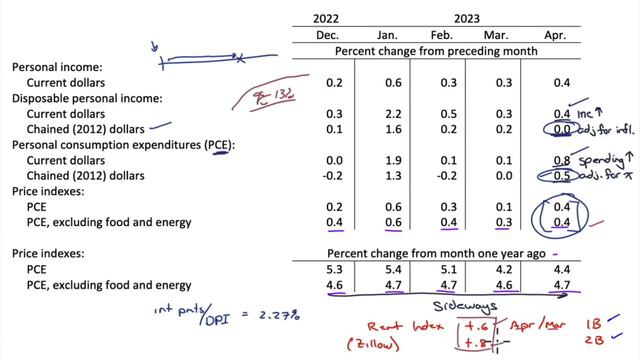 2022 2023
Dec. Jan. Feb. Mar. Apr.
Percent change from preceding month
Personal income:
Current dollars 0.2 0.6 0.3 0.3 0.4
Disposable personal income:
Current dollars 0.3 2.2 0.5 0.3 0.4 Inc ↑
Chained (2012) dollars 0.1 1.6 0.2 0.2 0.0 adj for infl.
Personal consumption expenditures (PCE):
Current dollars 0.0 1.9 0.1 0.1 0.8 spending ↑
Chained (2012) dollars -0.2 1.3 -0.2 0.0 0.5 adj. for π
Price indexes:
PCE 0.2 0.6 0.3 0.1 0.4
PCE, excluding food and energy 0.4 0.6 0.4 0.3 0.4
Price indexes: Percent change from month one year ago
PCE 5.3 5.4 5.1 4.2 4.4
PCE, excluding food and energy 4.6 4.7 4.7 4.6 4.7
Sideways
int pmts/DPI = 2.27%
Rent Index +.6 Apr/Mar 1B
(Zillow) +.8 2B